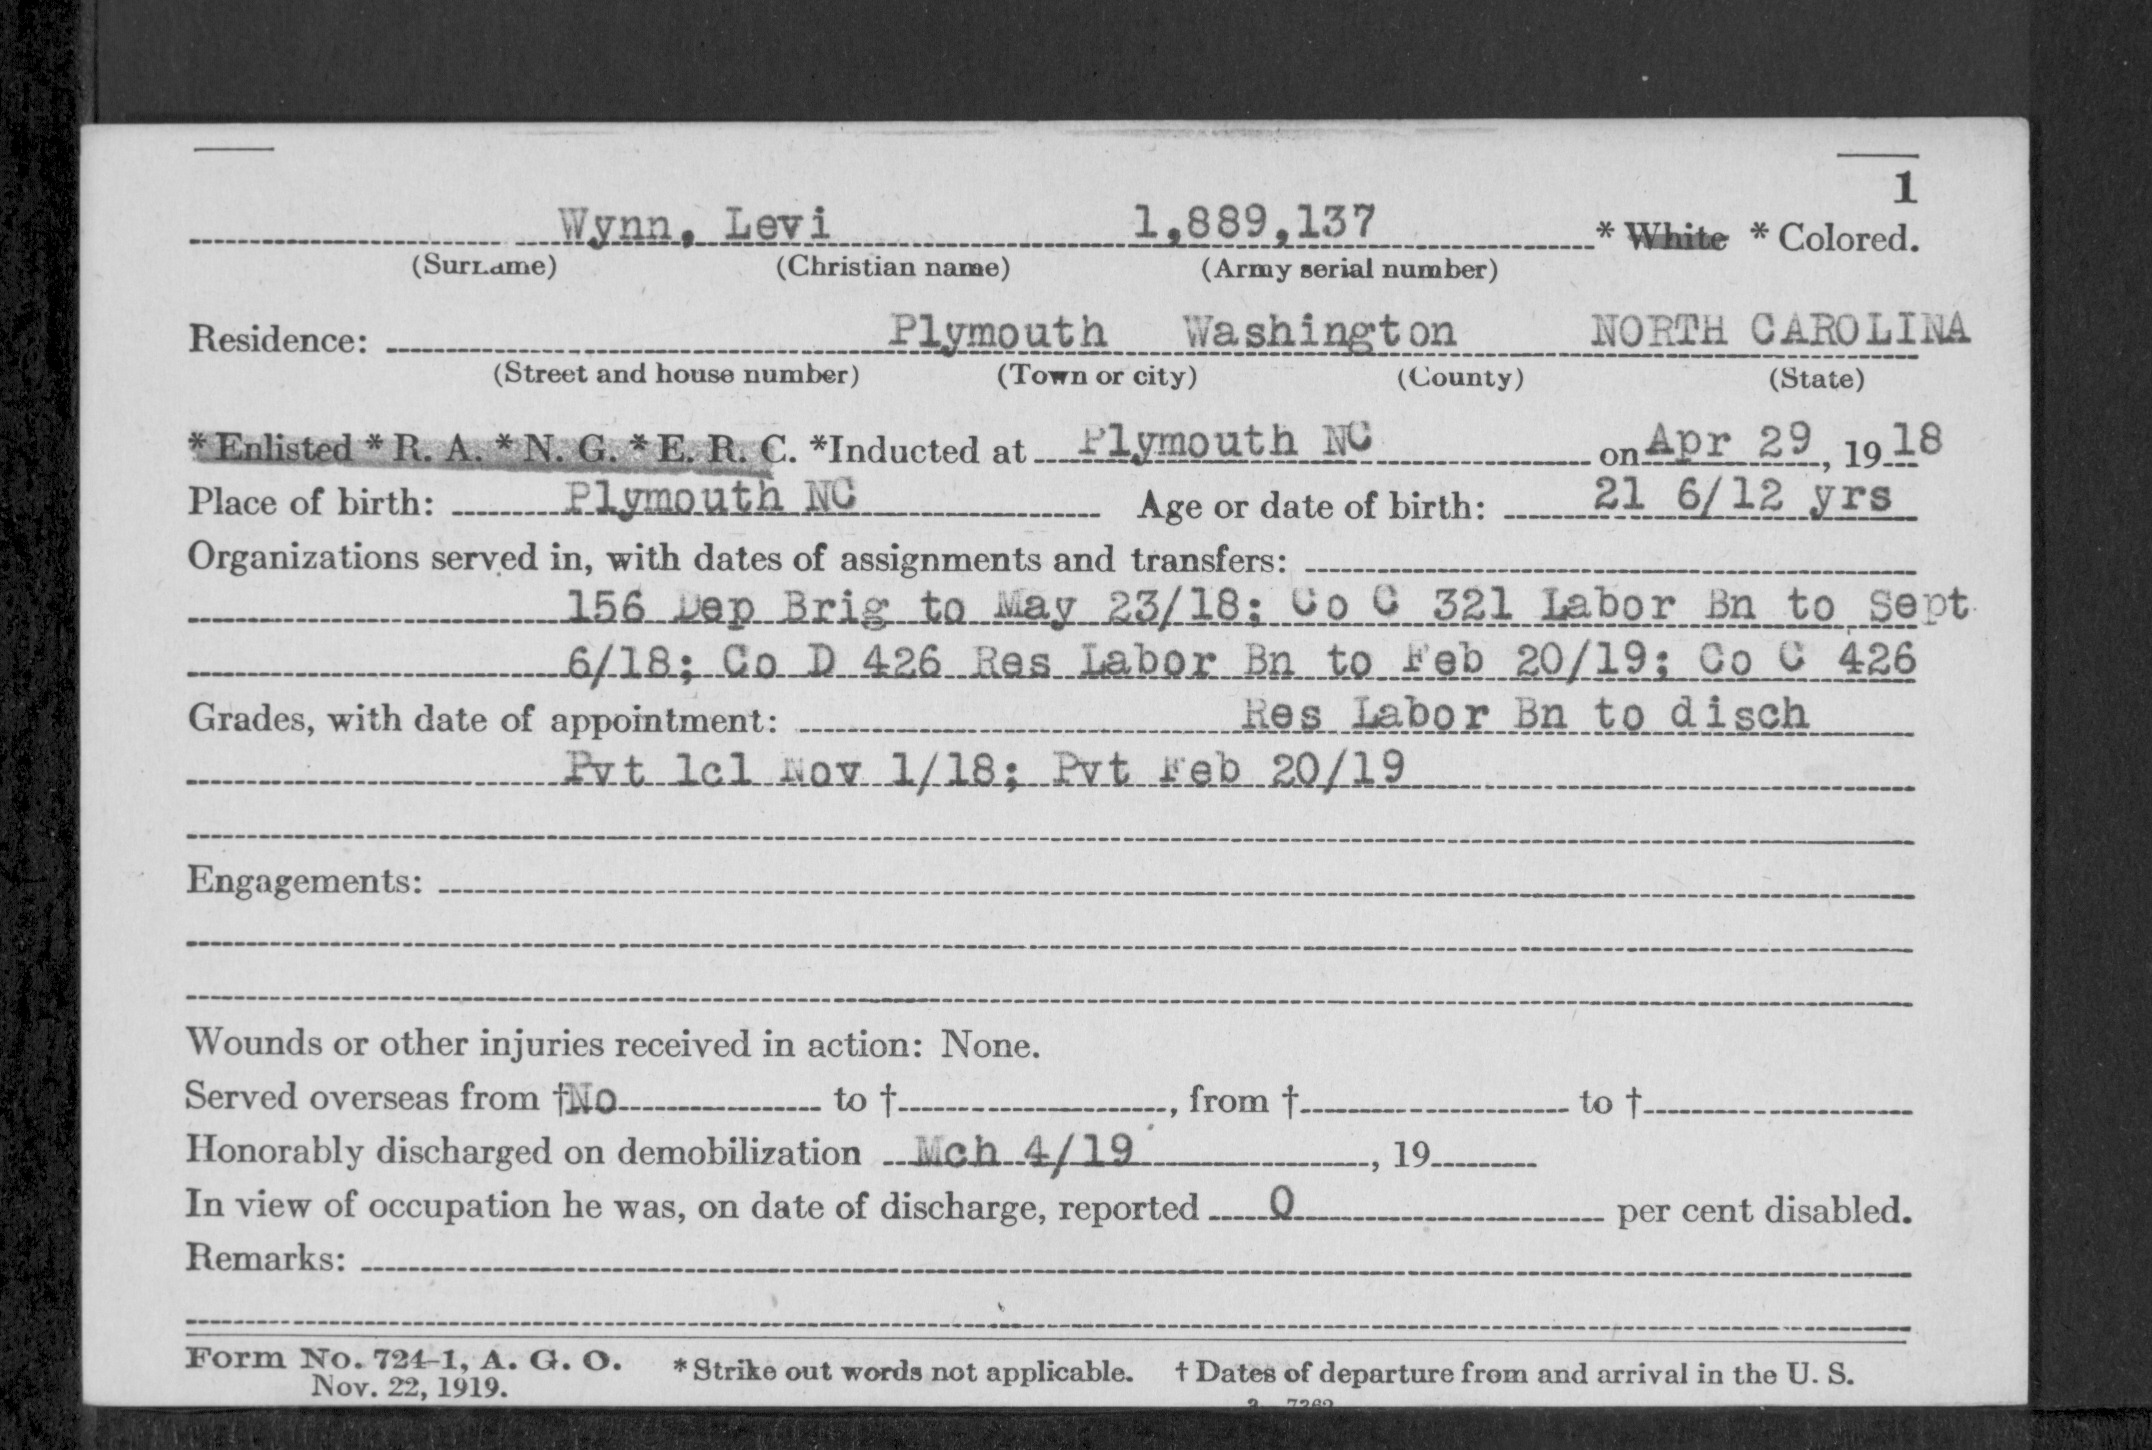 1
Wynn, Levi 1,889,137 * White * Colored.
(Surname) (Christian name) (Army serial number)
Residence: Plymouth Washington NORTH CAROLINA
(Street and house number) (Town or city) (County) (State)
* Enlisted * R. A. * N. G. * E. R. C. *Inducted at Plymouth NC on Apr 29, 1918
Place of birth: Plymouth NC Age or date of birth: 21 6/12 yrs
Organizations served in, with dates of assignments and transfers:
156 Dep Brig to May 23/18; Co C 321 Labor Bn to Sept
6/18; Co D 426 Res Labor Bn to Feb 20/19; Co C 426
Grades, with date of appointment: Res Labor Bn to disch
Pvt 1cl Nov 1/18; Pvt Feb 20/19
Engagements:
Wounds or other injuries received in action: None.
Served overseas from †No to †, from † to †
Honorably discharged on demobilization Mch 4/19, 19
In view of occupation he was, on date of discharge, reported 0 per cent disabled.
Remarks:
Form No. 724-1, A. G. O. * Strike out words not applicable. † Dates of departure from and arrival in the U. S.
Nov. 22, 1919.